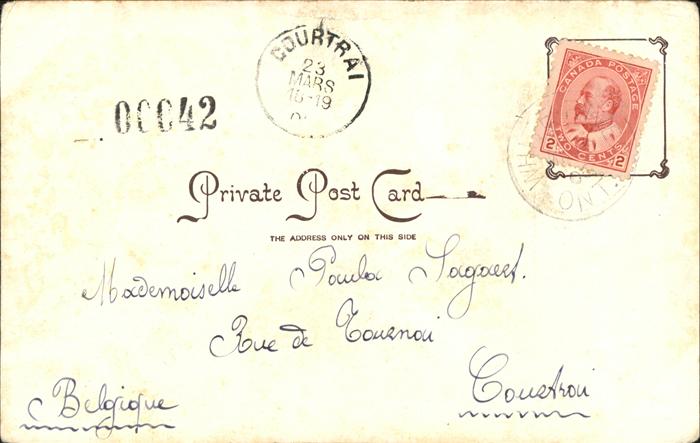 COURTRAI
23
MARS
15-19
00042
CANADA POSTAGE
2 TWO CENTS 2
Private Post Card
THE ADDRESS ONLY ON THIS SIDE
Mademoiselle Paula Sagaert.
Rue de Tournai
Courtrai
Belgique